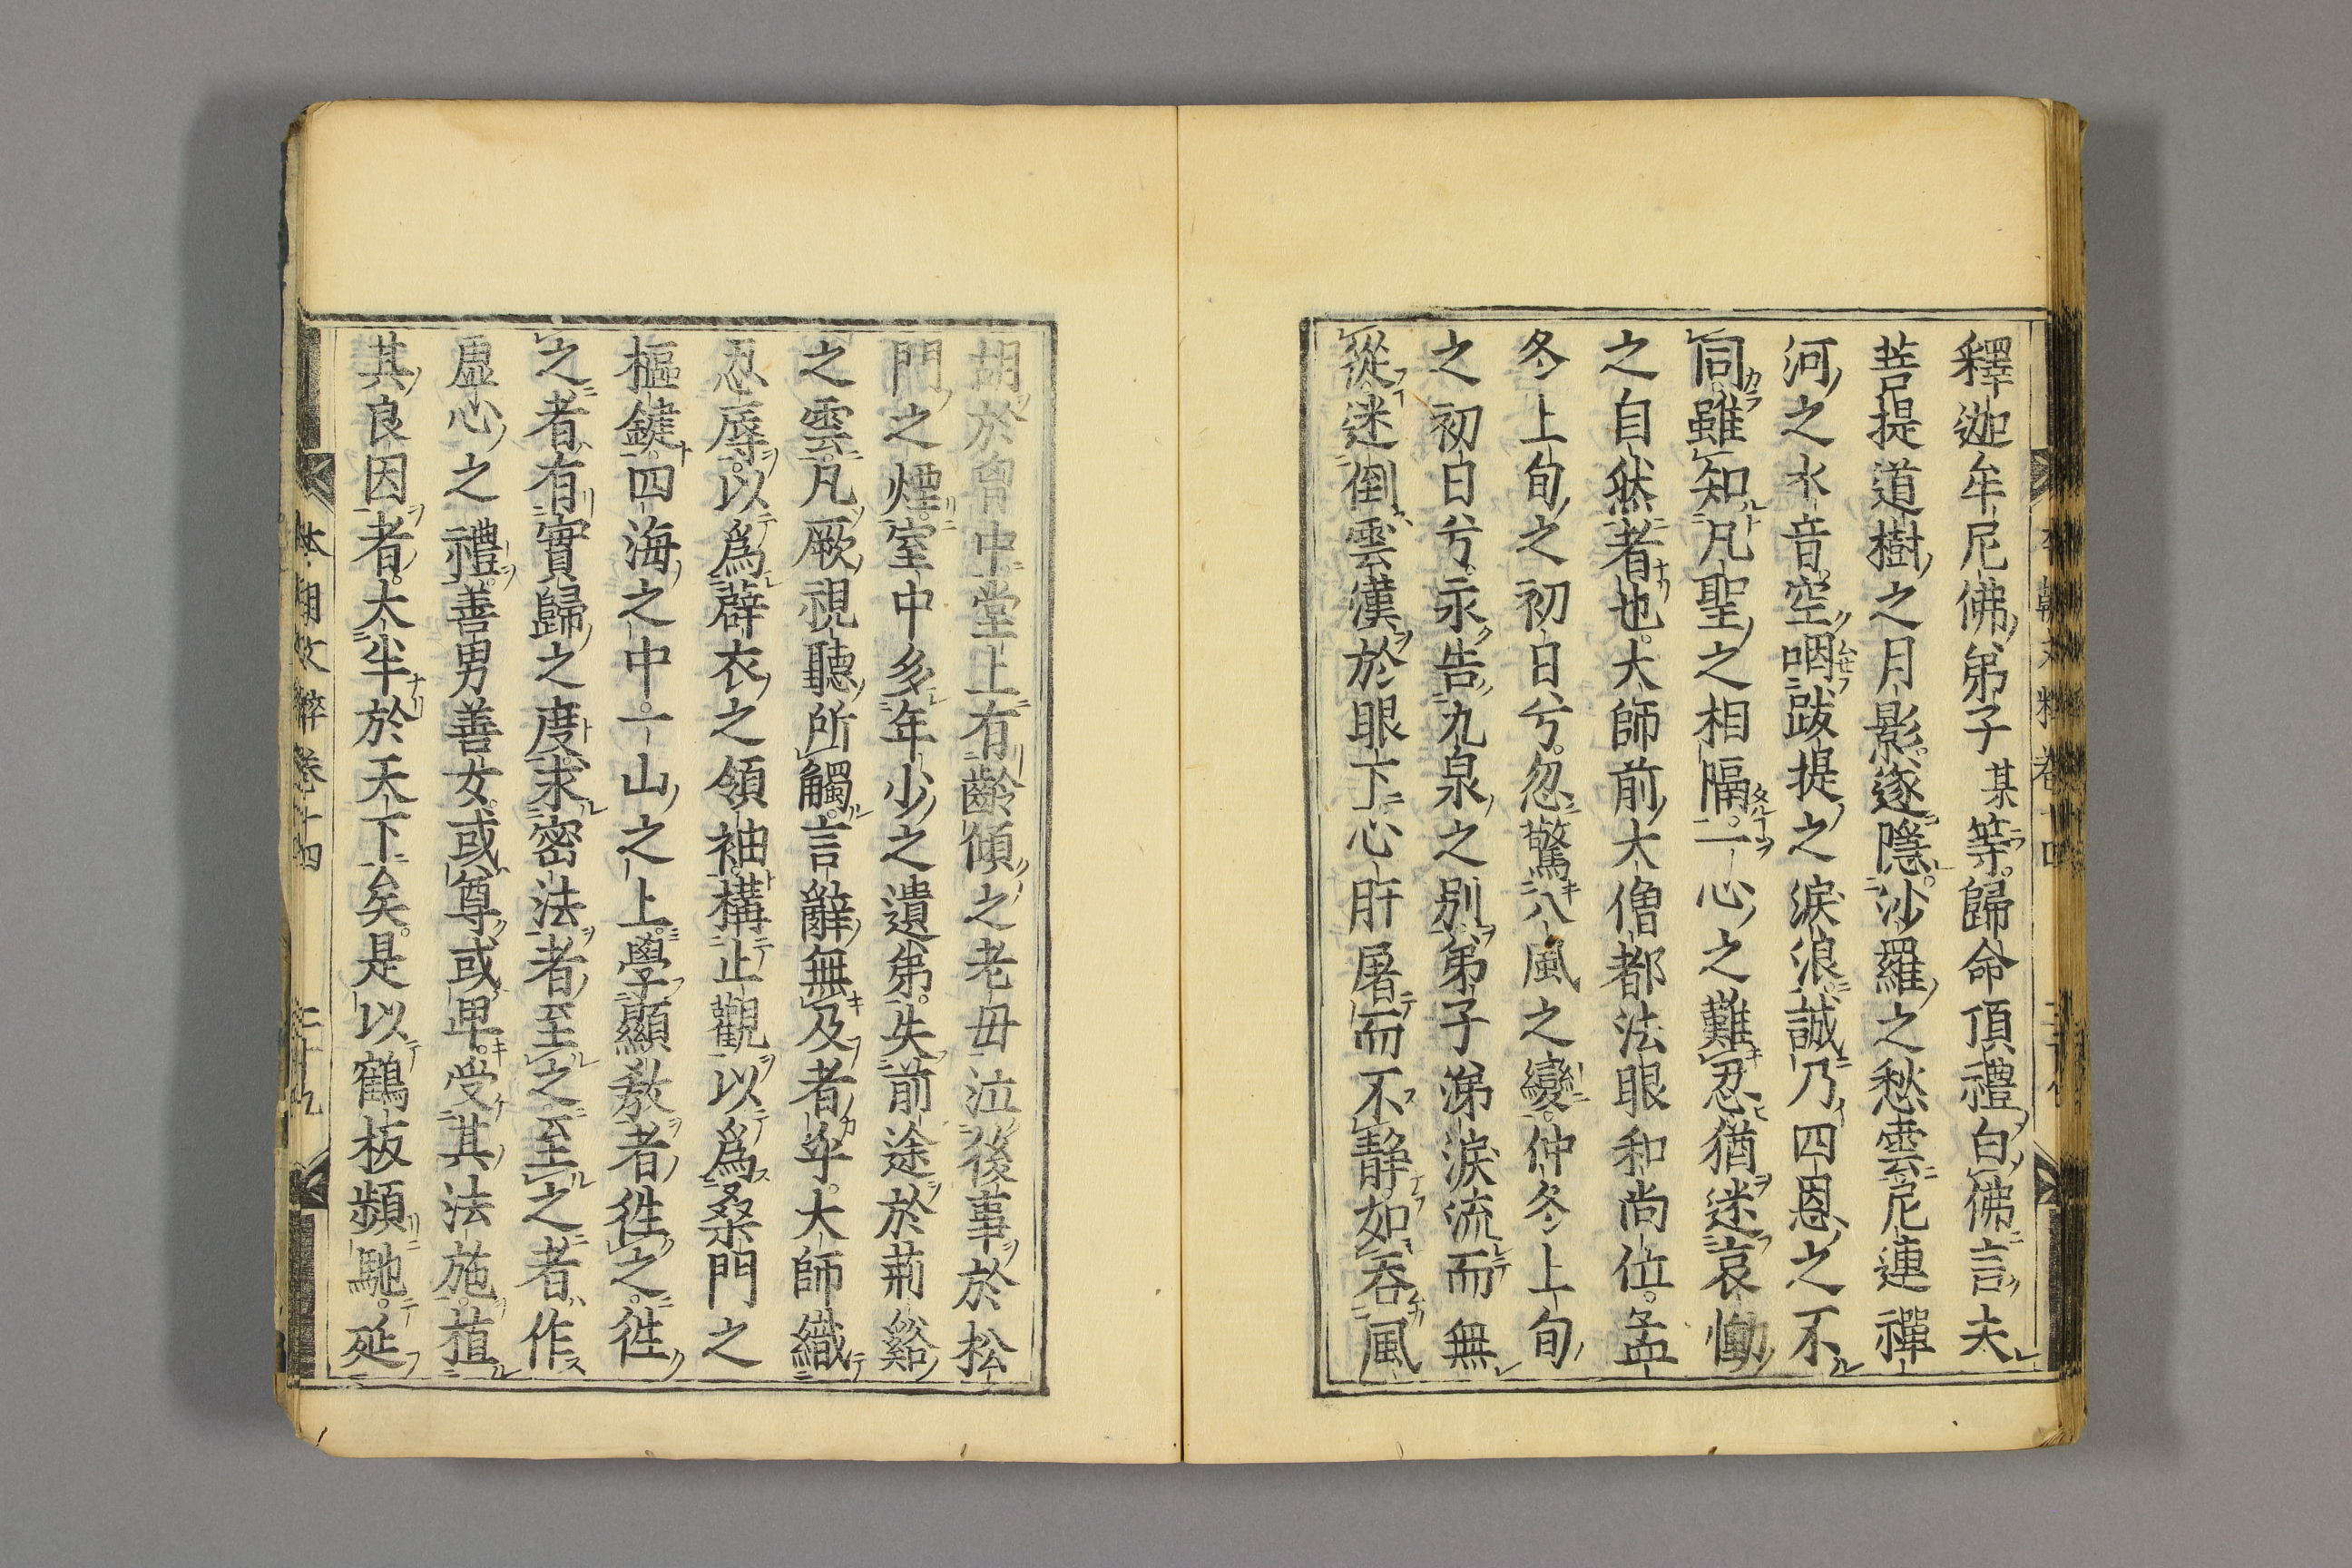 釋迦牟尼佛弟子某等歸命頂禮白佛言夫
菩提道樹之月影逐隱沙羅之愁雲尼連禪
河之水音空咽跋提之淚浪誠乃四恩之不
同雖知凡聖之相隔一心之難忍猶迷哀慟
之自然者也大師前大僧都法眼和尚位孟
冬上旬之初日兮忽驚八風之變仲冬上旬
之初日兮永告九泉之別弟子涕淚流而無
從迷倒雲漢於眼下心肝屠而不靜如吞風
胡於胷中堂上有齡傾之老母泣後事於松
門之煙室中多年少之遺弟失前途於荊谿
之雲凡厥視聽所觸言辭無及者乎大師織
忍辱以爲薜衣之領袖構止觀以爲桑門之
樞鍵四海之中一山之上學顯教者徃之徃
之者有實歸之度求密法者至之至之者作
虛心之禮善男善女或尊或卑受其法施植
其良因者大半於天下矣是以鶴板頻馳延
本朝文粹卷十四 二十九